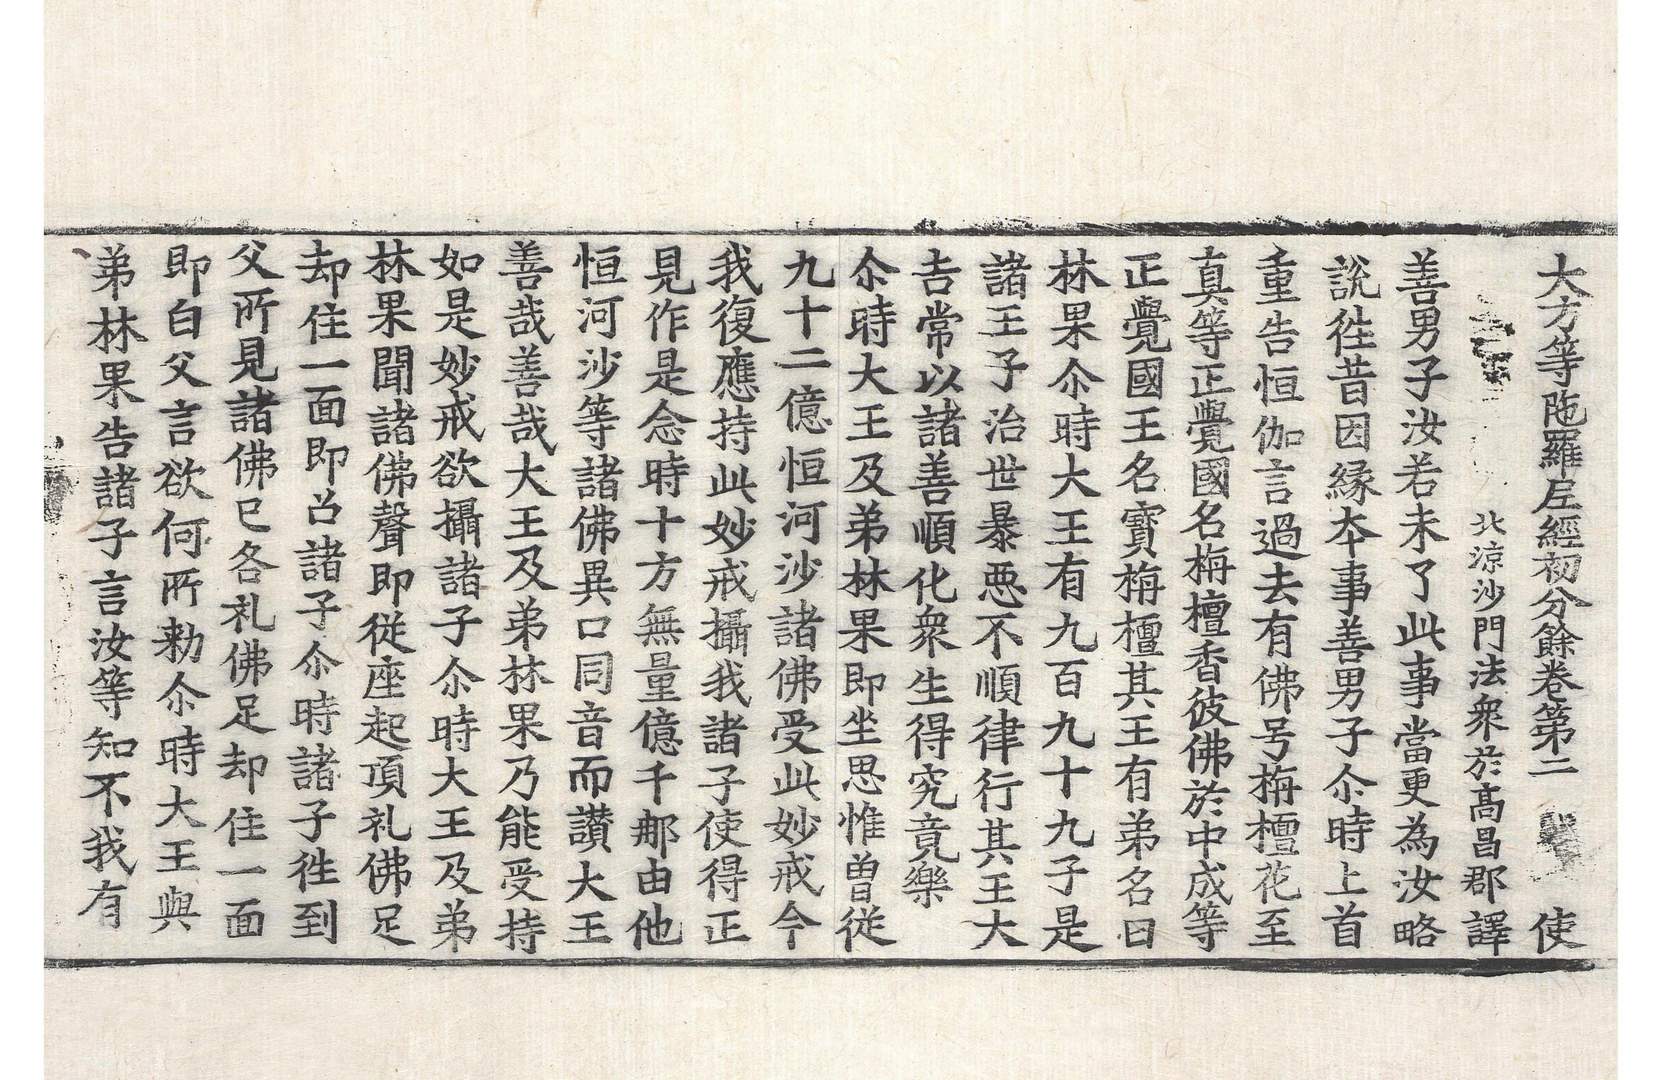 大方等陁羅尼經初分餘卷第二 使
北涼沙門法衆於高昌郡譯
善男子汝若未了此事當更為汝略
說徃昔因緣夲事善男子尒時上首
重告恒伽言過去有佛号栴檀花至
真等正覺國名栴檀香彼佛於中成等
正覺國王名寶栴檀其王有弟名曰
林果尒時大王有九百九十九子是
諸王子治世暴惡不順律行其王大
吉常以諸善順化衆生得究竟樂
尒時大王及弟林果即坐思惟曽從
九十二億恒河沙諸佛受此妙戒今
我復應持此妙戒攝我諸子使得正
見作是念時十方無量億千那由他
恒河沙等諸佛異口同音而讃大王
善哉善哉大王及弟林果乃能受持
如是妙戒欲攝諸子尒時大王及弟
林果聞諸佛聲即從座起頂礼佛足
却住一面即召諸子尒時諸子徃到
父所見諸佛已各礼佛足却住一面
即白父言欲何所勑尒時大王與
弟林果告諸子言汝等知不我有